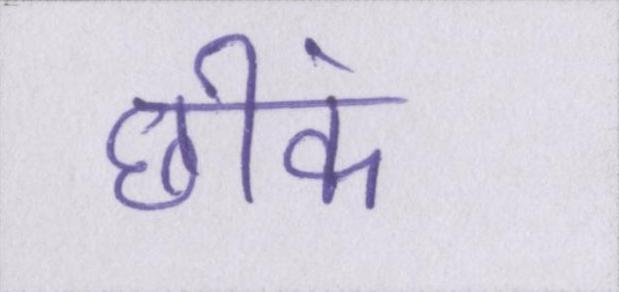 छीकं